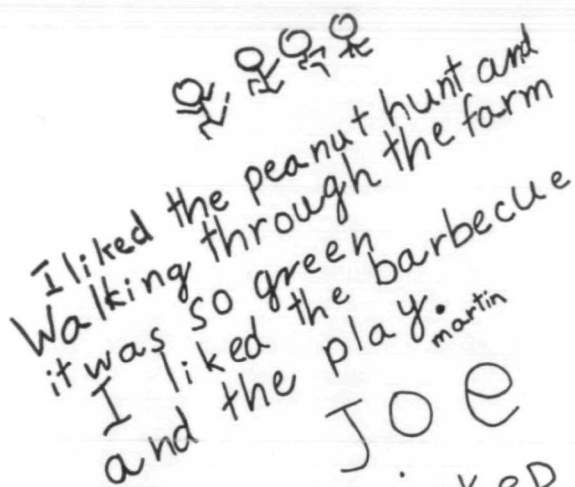 I liked the peanut hunt and
Walking through the farm
it was so green
I liked the barbecue
and the play.
martin
Joe